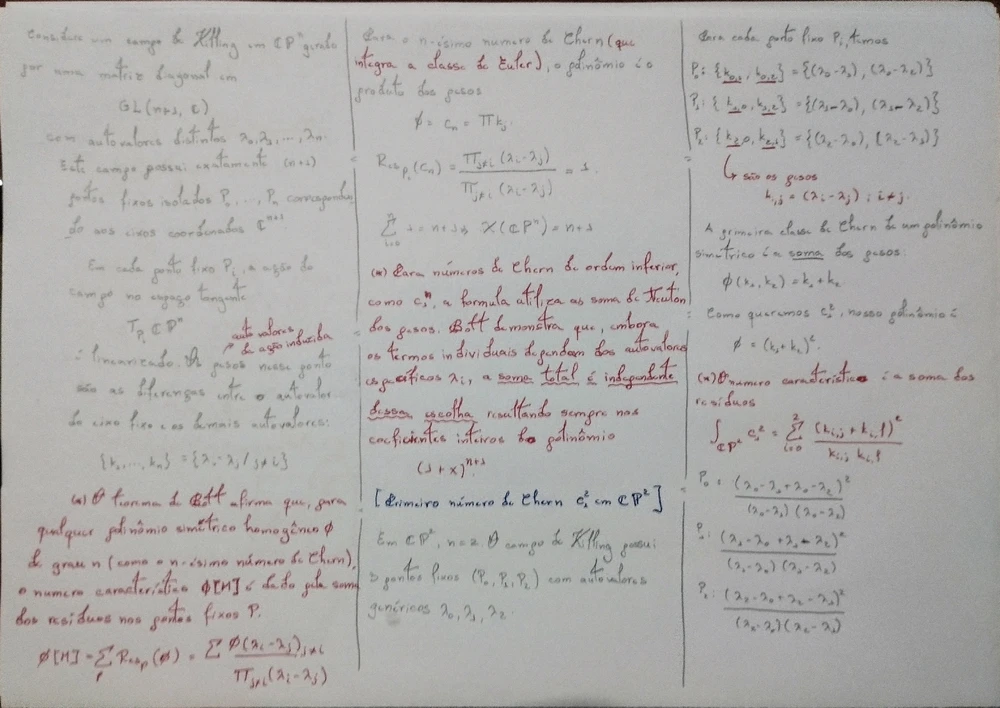 Considere um campo de Killing em ℂPⁿ gerado
por uma matriz diagonal em
GL(n+1, ℂ)
com autovalores distintos λ₀, λ₁, ..., λₙ.
Este campo possui exatamente (n+1)
pontos fixos isolados P₀, ..., Pₙ correspondendo
do aos eixos coordenados ℂⁿ⁺¹
Em cada ponto fixo Pᵢ, a ação do
campo no espaço tangente
T_Pᵢ ℂPⁿ
autovalores
da ação induzida
é linearizado. Os pesos nesse ponto
são as diferenças entre o autovalor
do eixo fixo e os demais autovalores:
{k₁, ..., kₙ} = {λᵢ - λⱼ / j≠i}
(*) O teorema de Bott afirma que, para
qualquer polinômio simétrico homogêneo ϕ
de grau n (como o n-ésimo número de Chern),
o numero característico ϕ[M] é dado pela soma
dos resíduos nos pontos fixos P.
ϕ[M] = Σ_P Res_P(ϕ) = Σ ϕ(λᵢ-λⱼ)_{j≠i} / Π_{j≠i}(λᵢ-λⱼ)
Para o n-ésimo numero de Chern (que
integra a classe de Euler), o polinômio é o
produto dos pesos
ϕ = cₙ = Π kⱼ.
Res_Pᵢ(cₙ) = Π_{j≠i}(λᵢ-λⱼ) / Π_{j≠i}(λᵢ-λⱼ) = 1.
Σ_{i=0}^{n} 1 = n+1 ⇒ χ(ℂPⁿ) = n+1
(*) Para números de Chern de ordem inferior,
como c₁ⁿ, a formula utiliza as soma de Newton
dos pesos. Bott demonstra que, embora
os termos individuais dependam dos autovalores
específicos λᵢ, a soma total é independente
dessa escolha resultando sempre nos
coeficientes inteiros do polinômio
(1+x)ⁿ⁺¹
[Primeiro número de Chern c₁² em ℂP²]
Em ℂP², n=2. O campo de Killing possui
3 pontos fixos (P₀, P₁, P₂) com autovalores
genéricos λ₀, λ₁, λ₂.
Para cada ponto fixo Pᵢ, temos
P₀: {k₀,₁, k₀,₂} = {(λ₀-λ₁), (λ₀-λ₂)}
P₁: {k₁,₀, k₁,₂} = {(λ₁-λ₀), (λ₁-λ₂)}
P₂: {k₂,₀, k₂,₁} = {(λ₂-λ₀), (λ₂-λ₁)}
↳ são os pesos
kᵢ,ⱼ = (λᵢ-λⱼ) ; i≠j.
A primeira classe de Chern de um polinômio
simétrico é a soma dos pesos:
ϕ(k₁, k₂) = k₁ + k₂.
Como queremos c₁², nosso polinômio é
ϕ = (k₁+k₂)².
(*) O número característico é a soma dos
resíduos
∫_{ℂP²} c₁² = Σ_{i=0}^{2} (kᵢ,ⱼ + kᵢ,ₗ)² / kᵢ,ⱼ kᵢ,ₗ
P₀: (λ₀-λ₁+λ₀-λ₂)² / (λ₀-λ₁)(λ₀-λ₂)
P₁: (λ₁-λ₀+λ₁-λ₂)² / (λ₁-λ₀)(λ₁-λ₂)
P₂: (λ₂-λ₀+λ₂-λ₁)² / (λ₂-λ₀)(λ₂-λ₁)